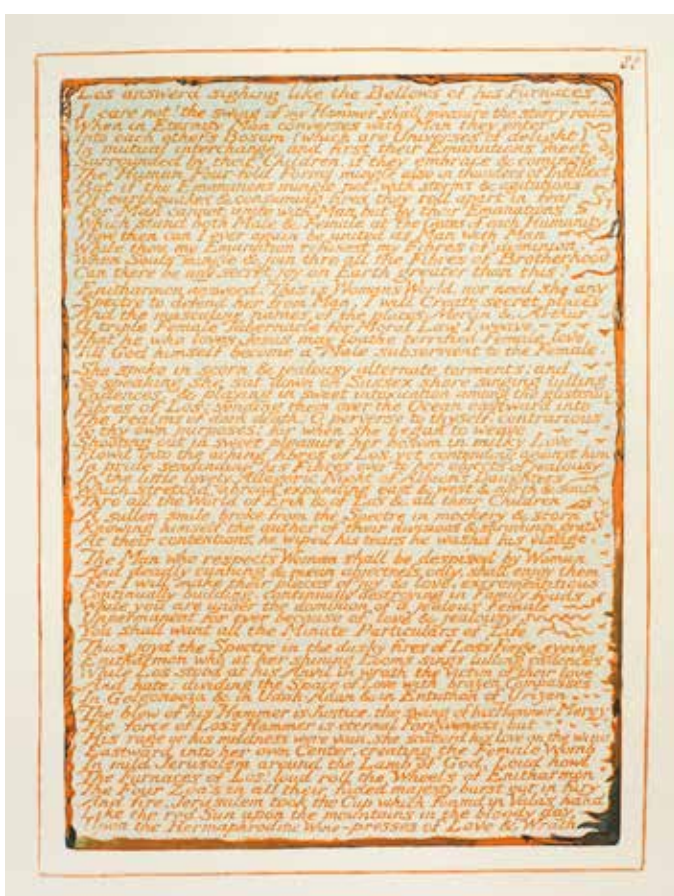 88
Los answerd sighing like the Bellows of his Furnaces
I care not! the swing of my Hammer shall measure the starry round
When in Eternity Man converses with Man they enter
Into each others Bosom (which are Universes of delight)
In mutual interchange. and first their Emanations meet
Surrounded by their Children. if they embrace & comingle
The Human Four-fold Forms mingle also in thunders of Intellect
But if the Emanations mingle not; with storms & agitations
Of earthquakes & consuming fires they roll apart in fear
For Man cannot unite with Man but by their Emanations
Which stand both Male & Female at the Gates of each Humanity
How then can I ever again be united as Man with Man
While thou my Emanation refusest my Fibres of dominion.
When Souls mingle & join thro all the Fibres of Brotherhood
Can there be any secret joy on Earth greater than this?
Enitharmon answerd: This is Womans World, nor need she any
Spectre to defend her from Man. I will Create secret places
And the masculine names of the places Merlin & Arthur.
A triple Female Tabernacle for Moral Law I weave
That he who loves Jesus may loathe terrified Female love
Till God himself become a Male subservient to the Female.
She spoke in scorn & jealousy, alternate torments; and
So speaking she sat down on Sussex shore singing lulling
Cadences, & playing in sweet intoxication among the glistening
Fibres of Los: sending them over the Ocean eastward into
The realms of dark death; O perverse to thyself, contrarious
To thy own purposes; for when she began to weave
Shooting out in sweet pleasure her bosom in milky Love
Flowd into the aching fibres of Los. yet contending against him
In pride sending his Fibres over to her objects of jealousy
In the little lovely Allegoric Night of Albions Daughters
Which stretchd abroad, expanding east & west & north & south
Thro' all the World of Erin & of Los & all their Children
A sullen smile broke from the Spectre in mockery & scorn
Knowing himself the author of their divisions & shrinkings, gratified
At their contentions, he wiped his tears he washd his visage.
The Man who respects Woman shall be despised by Woman
And deadly cunning & mean abjectness only, shall enjoy them
For I will make their places of joy & love, excrementitious.
Continually building, continually destroying in Family feuds
While you are under the dominion of a jealous Female
Unpermanent for ever because of love & jealousy.
You shall want all the Minute Particulars of Life
Thus joyd the Spectre in the dusky fires of Los's Forge, eyeing
Enitharmon who at her shining Looms sings lulling cadences
While Los stood at his Anvil in wrath the victim of their love
And hate; dividing the Space of Love with brazen Compasses
In Golgonooza & in Udan-Adan & in Entuthon of Urizen.
The blow of his Hammer is Justice, the swing of his Hammer, Mercy.
The force of Los's Hammer is eternal Forgiveness; but
His rage or his mildness were vain, she scatterd his love on the wind
Eastward into her own Center, creating the Female Womb
In mild Jerusalem around the Lamb of God. Loud howl
The Furnaces of Los! loud roll the Wheels of Enitharmon
The Four Zoa's in all their faded majesty burst out in fury
And fire. Jerusalem took the Cup which foamd in Vala's hand
Like the red Sun upon the mountains in the bloody day
Upon the Hermaphroditic Wine-presses of Love & Wrath.